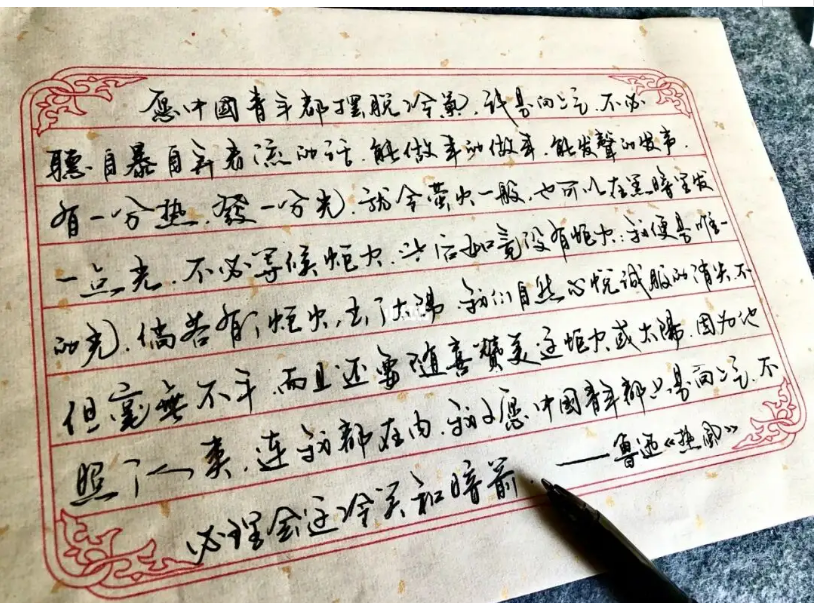 愿中國青年都摆脱冷氣，只是向上走，不必
聽自暴自弃者流的话。能做事的做事，能发聲的发声。
有一分热，發一分光，就令萤火一般，也可以在黑暗里发
一点光，不必等候炬火。此后如竟没有炬火：我便是唯一
的光。倘若有了炬火，出了太陽，我们自然心悦诚服的消失，不
但毫無不平，而且还要随喜赞美这炬火或太陽，因为他
照了人类，连我都在内。我又愿中國青年都只是向上走，不
必理会这冷笑和暗箭
——鲁迅《热風》